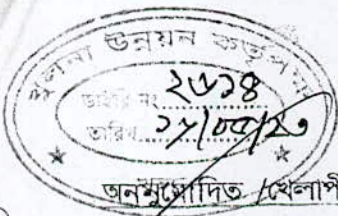 খুলনা উন্নয়ন কর্তৃপক্ষ
ডাইরি নং ২৬১৪
তারিখ ১৭/০৫/২৩
অননুমোদিত /খেলাপী